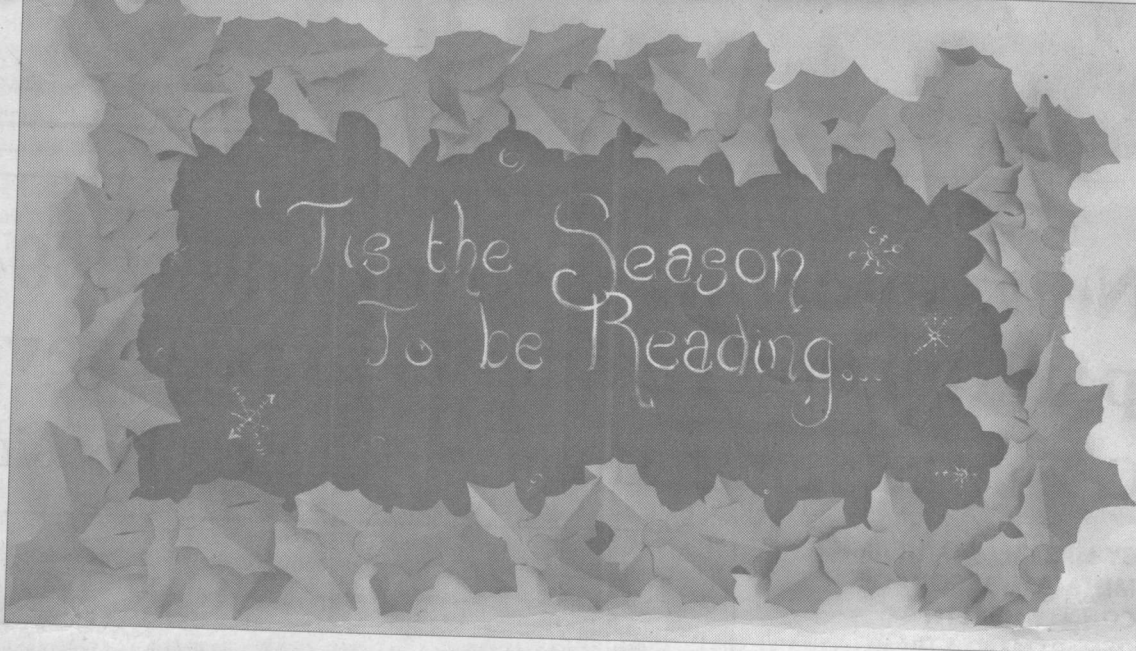 'Tis the Season
To be Reading...